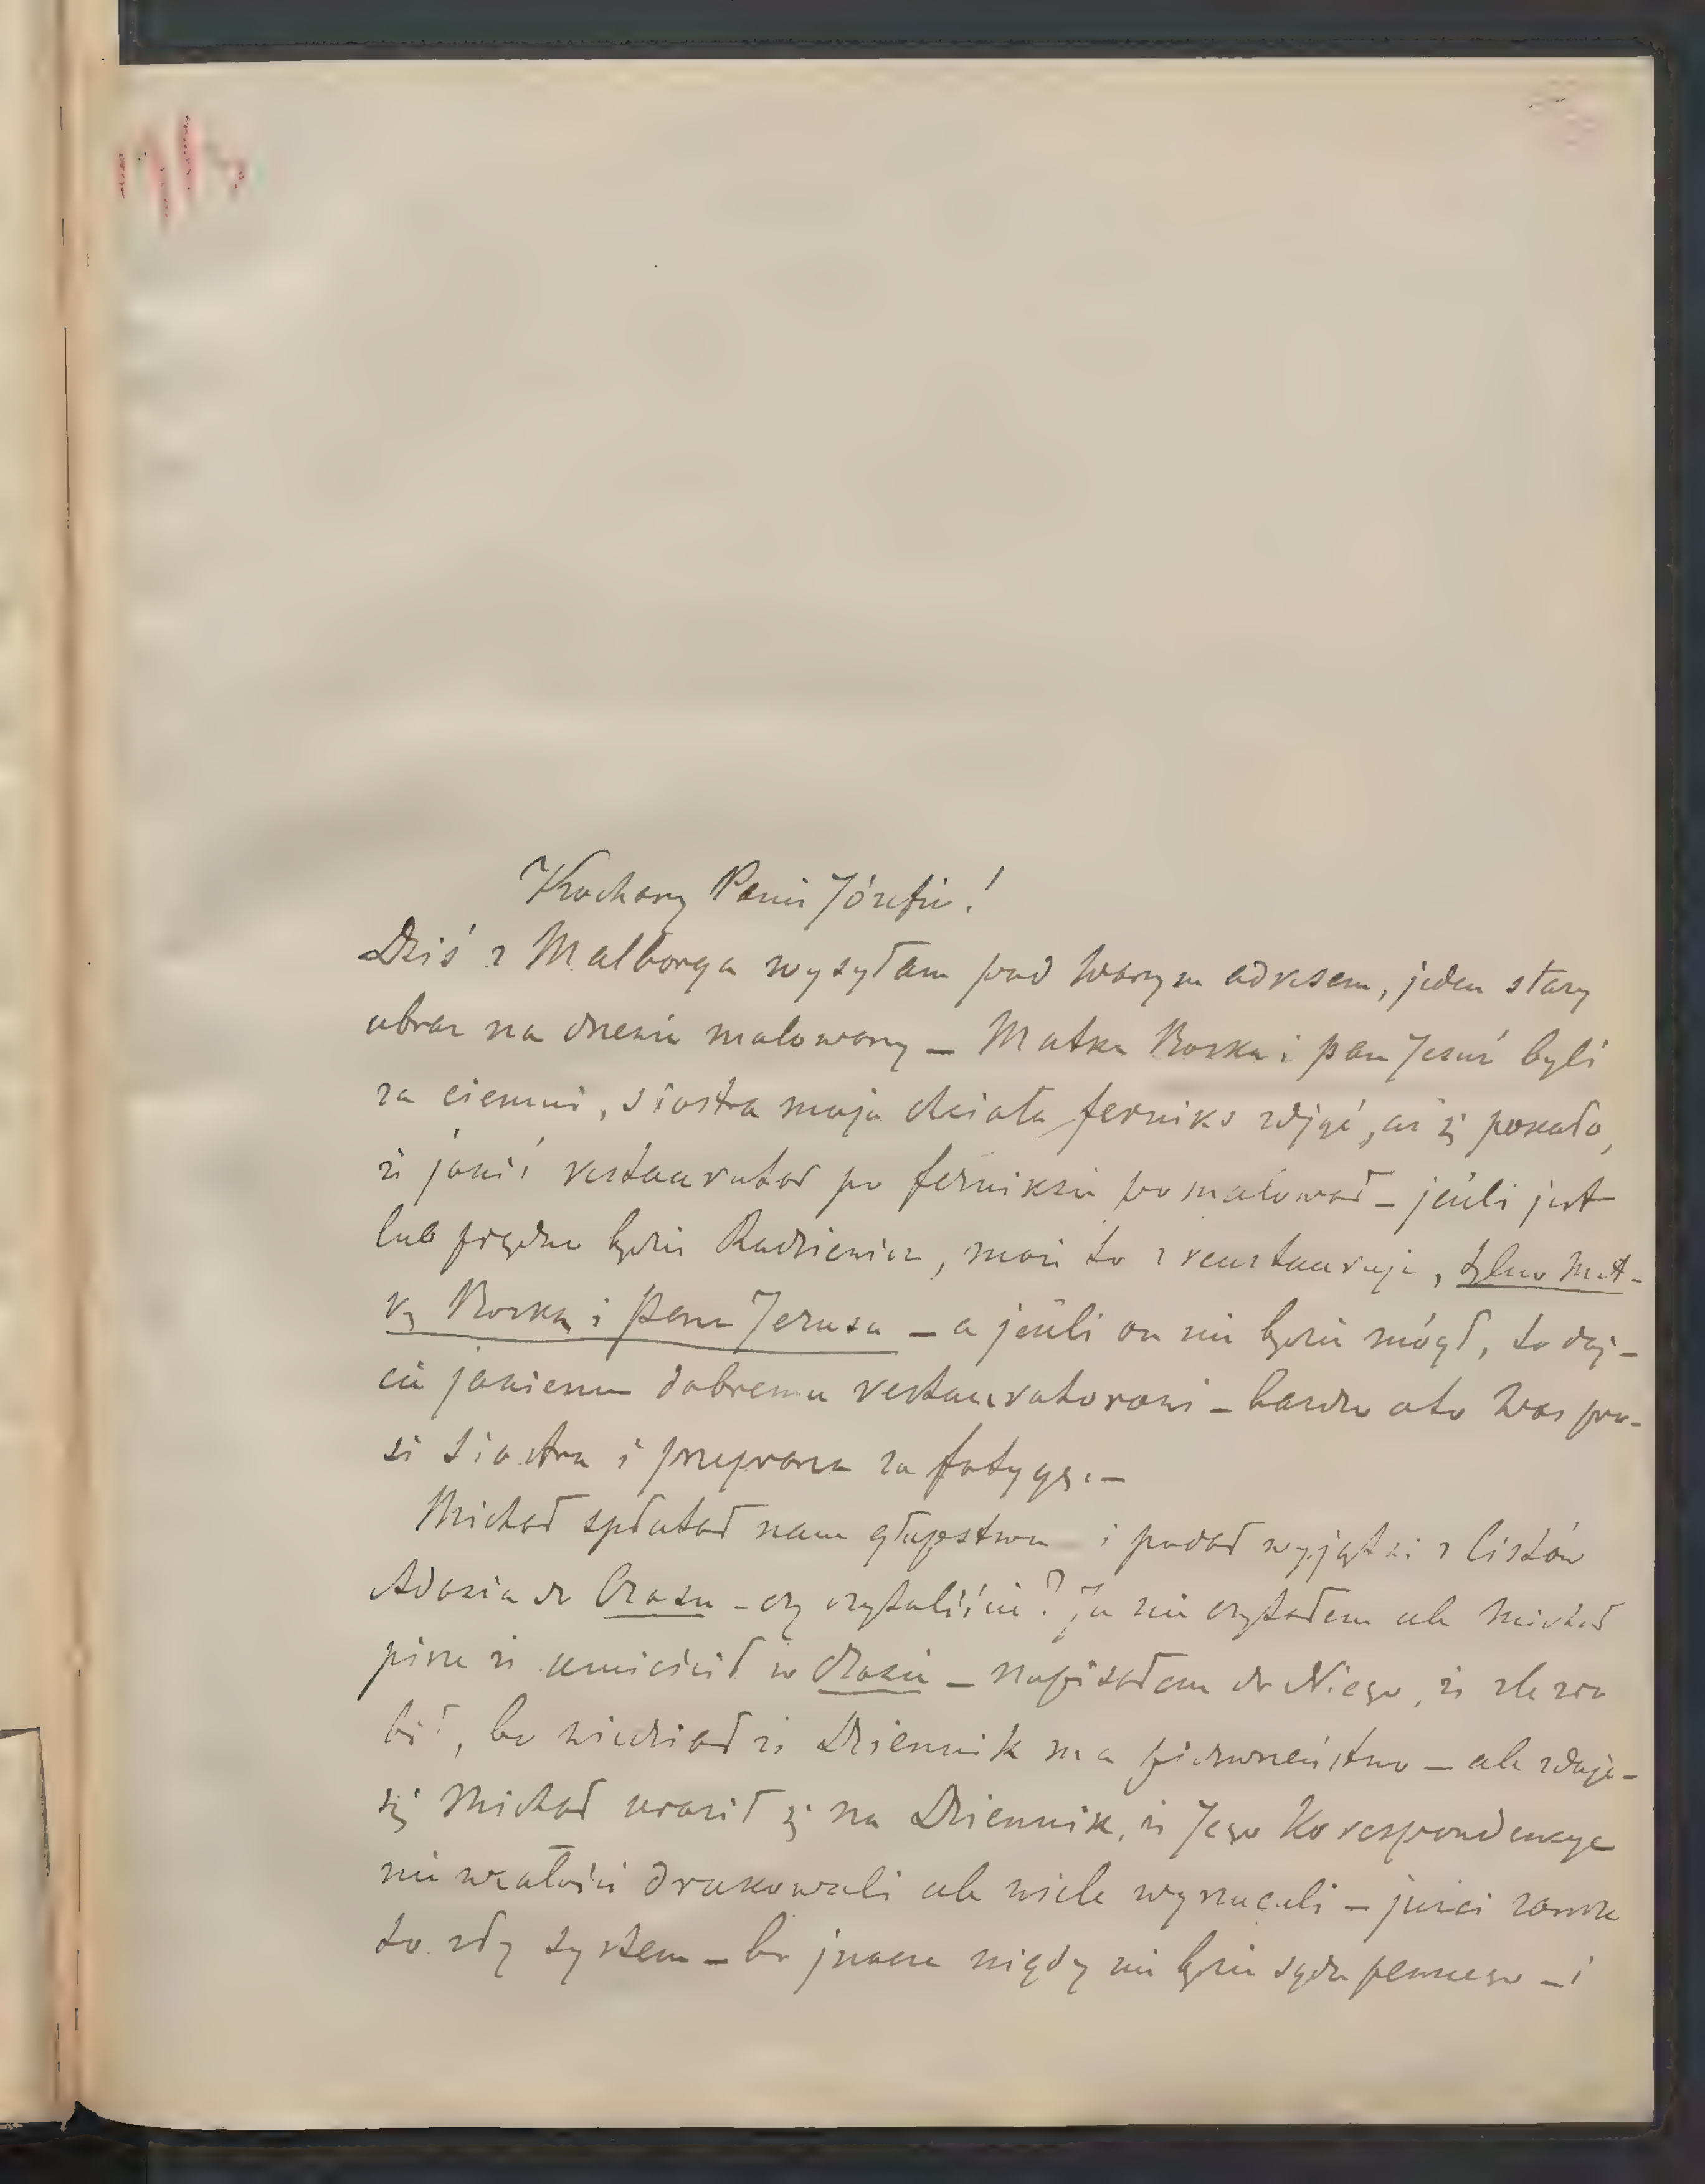 17/3
Kochany Panie Józefie!
Dziś z Malborga wysyłam pod Waszym adresem, jeden stary
obraz na drzewie malowany – Matka Boska i pan Jezus byli
za ciemni, siostra moja chciała ferniks zdjąć, aż się pokazało,
że jakiś restaurator po ferniksie pomalował – jeżeli jest
lub prędko będzie Radziewicz, może to zrestauruje, tylko Mat-
kę Boską i Pana Jezusa – a jeżeli on nie będzie mógł, to daj-
cie jakiemu dobremu restauratorowi – bardzo o to Was pro-
si siostra i przeprasza za fatygę. –
Michał spłatał nam głupstwo i podał wyjątki z listów
Adasia do Czasu – czy czytaliście? Ja nie czytałem ale Michał
pisze że umieścił w Czasie – napisałem do Niego, że źle zro
bił, bo wiedział że Dziennik ma pierwszeństwo – ale zdaje-
się Michał uraził się na Dziennik, że Jego Korespondencye
nie w całości drukowali ale wiele wyrzucali – juści zawsze
to zły system – bo inaczej nigdy nie będzie sądu pewnego – i